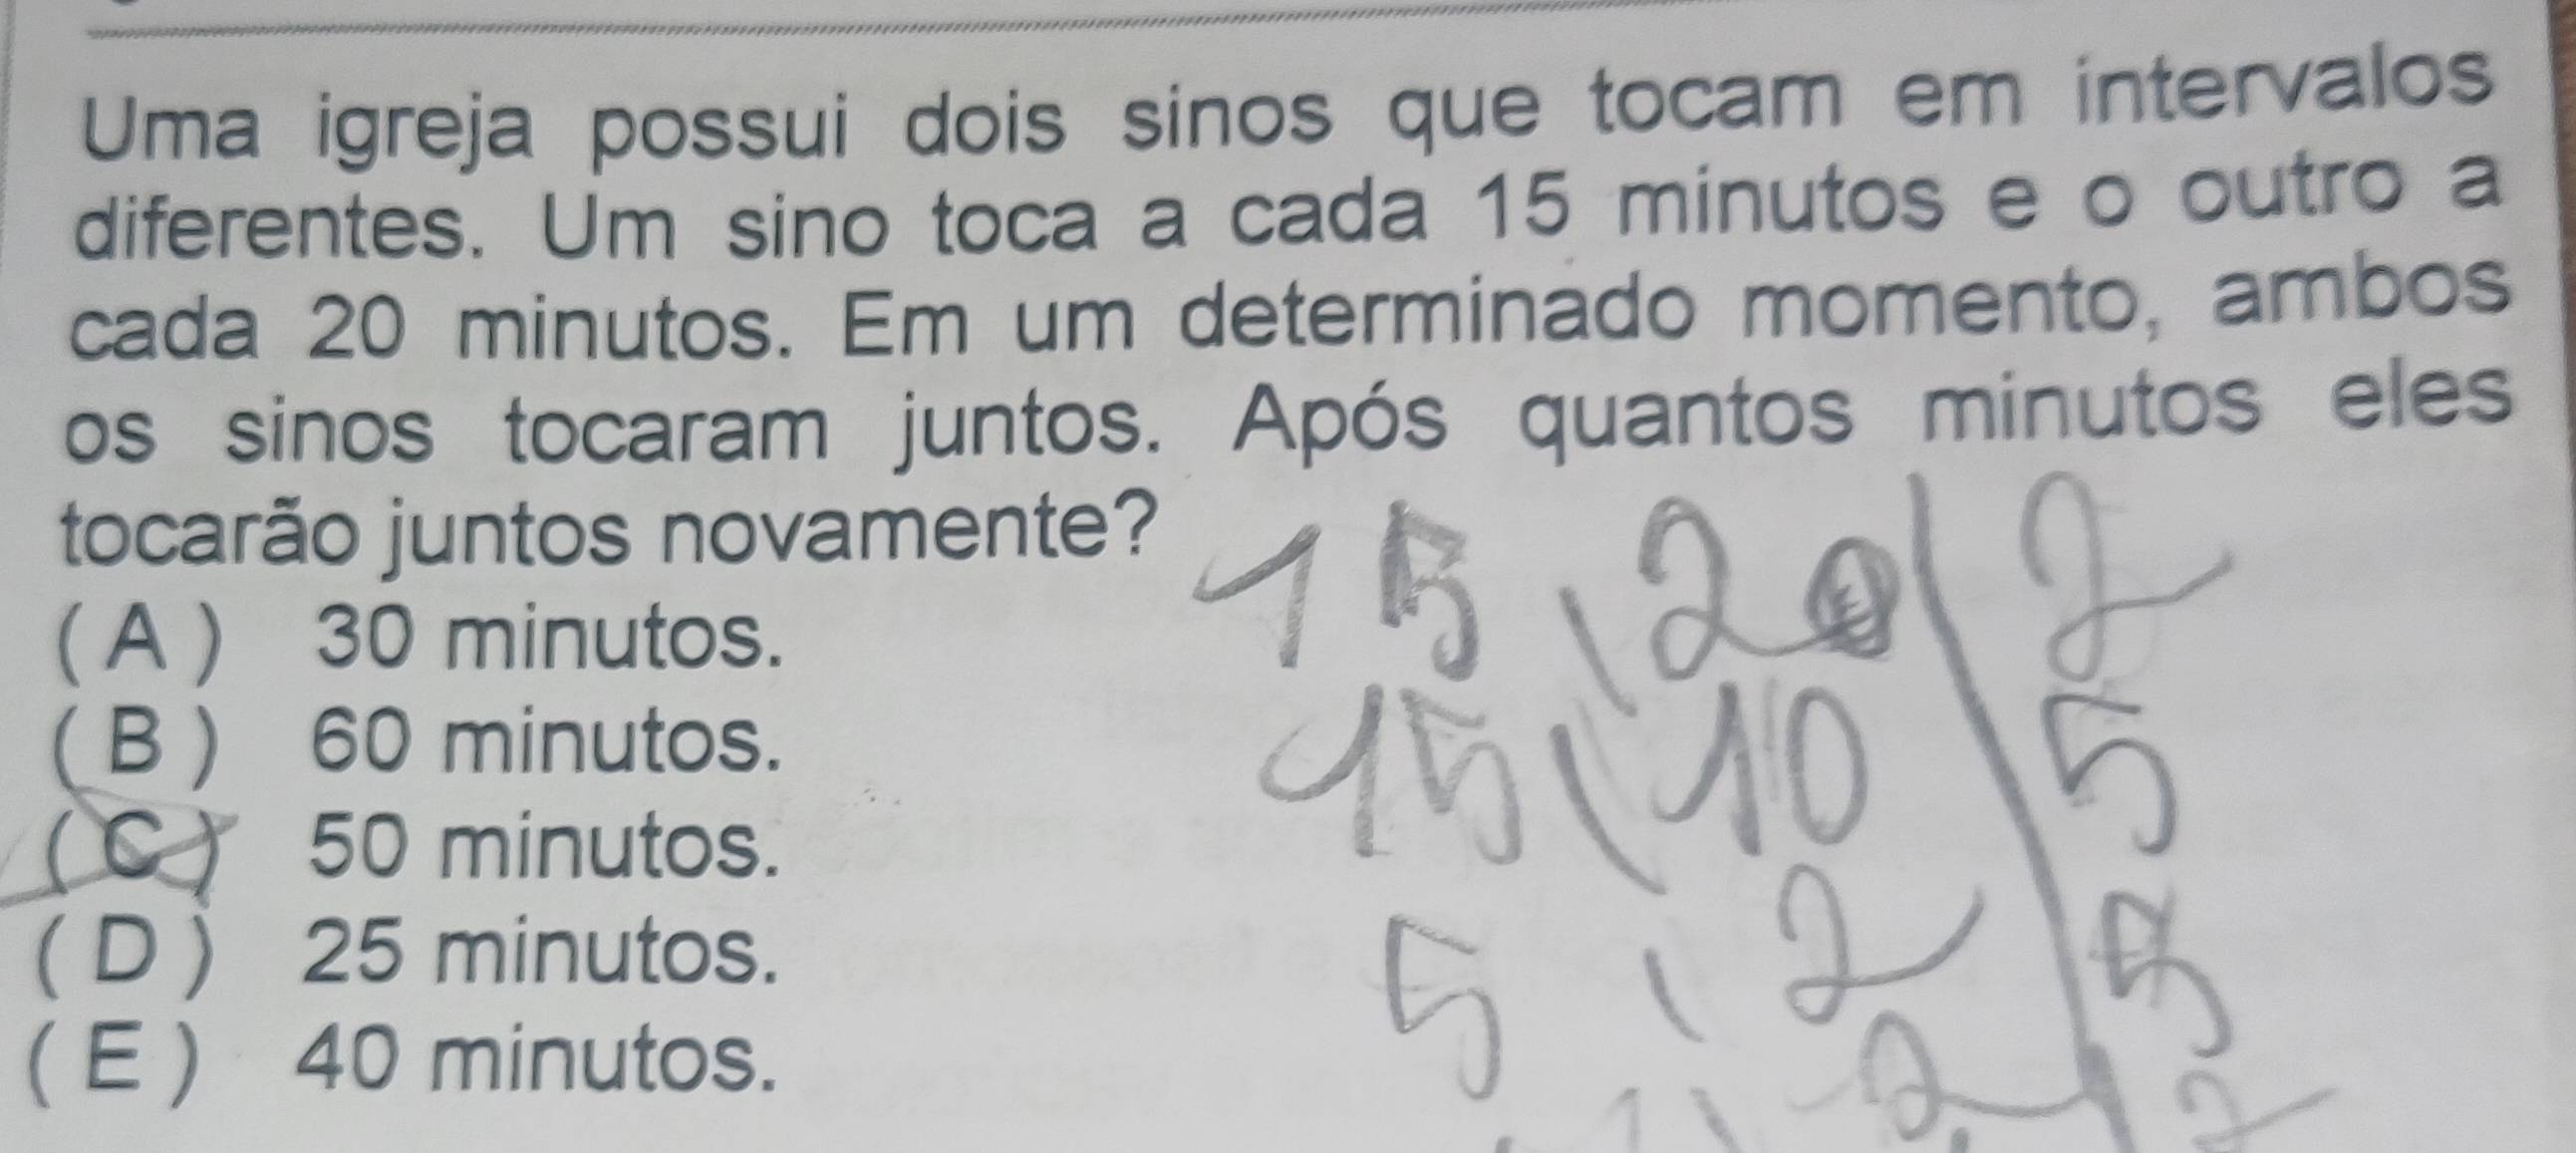 Uma igreja possui dois sinos que tocam em intervalos
diferentes. Um sino toca a cada 15 minutos e o outro a
cada 20 minutos. Em um determinado momento, ambos
os sinos tocaram juntos. Após quantos minutos eles
tocarão juntos novamente?
(A) 30 minutos.
(B) 60 minutos.
(C) 50 minutos.
(D) 25 minutos.
(E) 40 minutos.
15, 20 | 2
15, 10 | 5
5, 2 | 5
1, 2 | 2